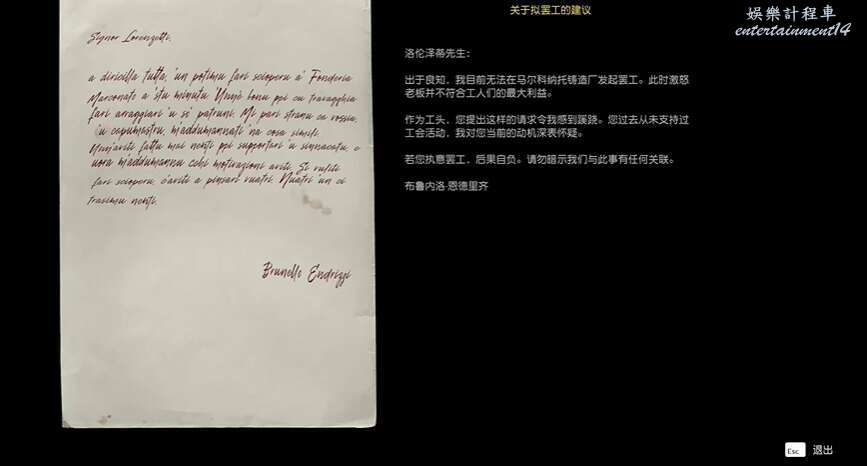 关于拟罢工的建议
娛樂計程車
entertainment14
Signor Lorenzetti,
a diricilla tutta, 'un putimu fari scioperu a' Fonderia
Marconate a 'stu minutu. 'Unn'è bonu ppi cu travagghia
fari arraggiari 'u si' patruni. Mi pari stranu ca vossia,
'u capumastru, m'addumannati 'na cosa simili.
'Unn'aviti fattu mai nenti ppi supportari 'u sinnacatu, e
uora m'addumannu cchi motivazioni aviti. Si vuliti
fari scioperu, c'aviti a pinsari vuatri. Nuatri un ci
trasimu nenti.
Brunello Endrizzi
洛伦泽蒂先生：
出于良知，我目前无法在马尔科纳托铸造厂发起罢工。此时激怒
老板并不符合工人们的最大利益。
作为工头，您提出这样的请求令我感到蹊跷。您过去从未支持过
工会活动，我对您当前的动机深表怀疑。
若您执意罢工，后果自负。请勿暗示我们与此事有任何关联。
布鲁内洛·恩德里齐
Esc 退出